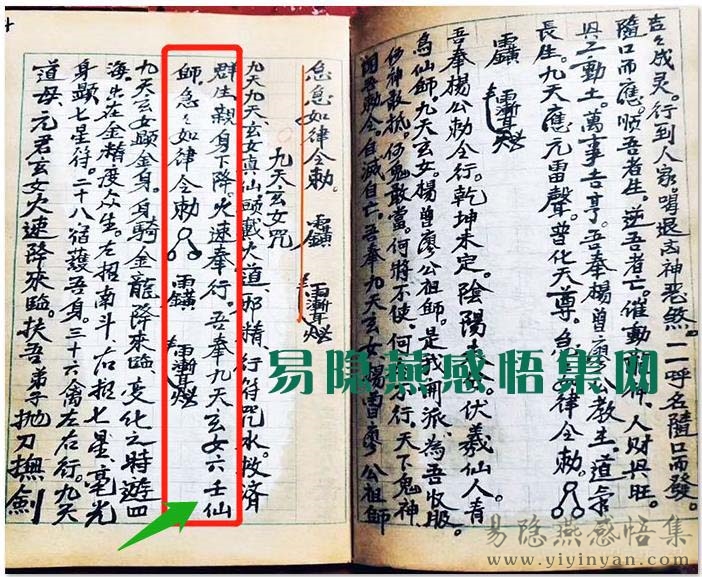 吉之成灵。行到人家
神惡煞。一一呼名隨口而發。
隨口而應。順吾者生。逆吾者亡。催動
人财興旺。
興工動土。萬事吉亨。吾奉楊曾廖公教主道
長生。九天應元雷聲。普化天尊。急
如律令勅。
吾奉楊公勅令行。乾坤未定。陰陽
伏羲仙人
仙師。九天玄女。楊曾廖公祖師。是我
派、為吾收服
何神敢抵。何鬼敢當。何將不使。何
不行。天下鬼神
聞吾勅令。自滅自亡。吾奉九天玄女楊曾廖公祖師
急急如律令勅。
九天玄女咒
九天九天、玄女真仙、頭戴大道、邪精、行符咒水、救濟
群生。親身下降。火速奉行。吾奉九天玄女六壬仙
師。急之如律令勅
九天玄女顕金身。身騎金龍降來臨。变化之時遊四
海。坐在金精度众生。左招南斗、右招七星、毫光
身顕七星符。二十八宿護吾身。三十六禽左右行。九天
道母、元君玄女火速降來臨。扶吾弟子抛刀撫劍
易隐燕感悟集网
易隐燕感悟集
www.yiyinyan.com